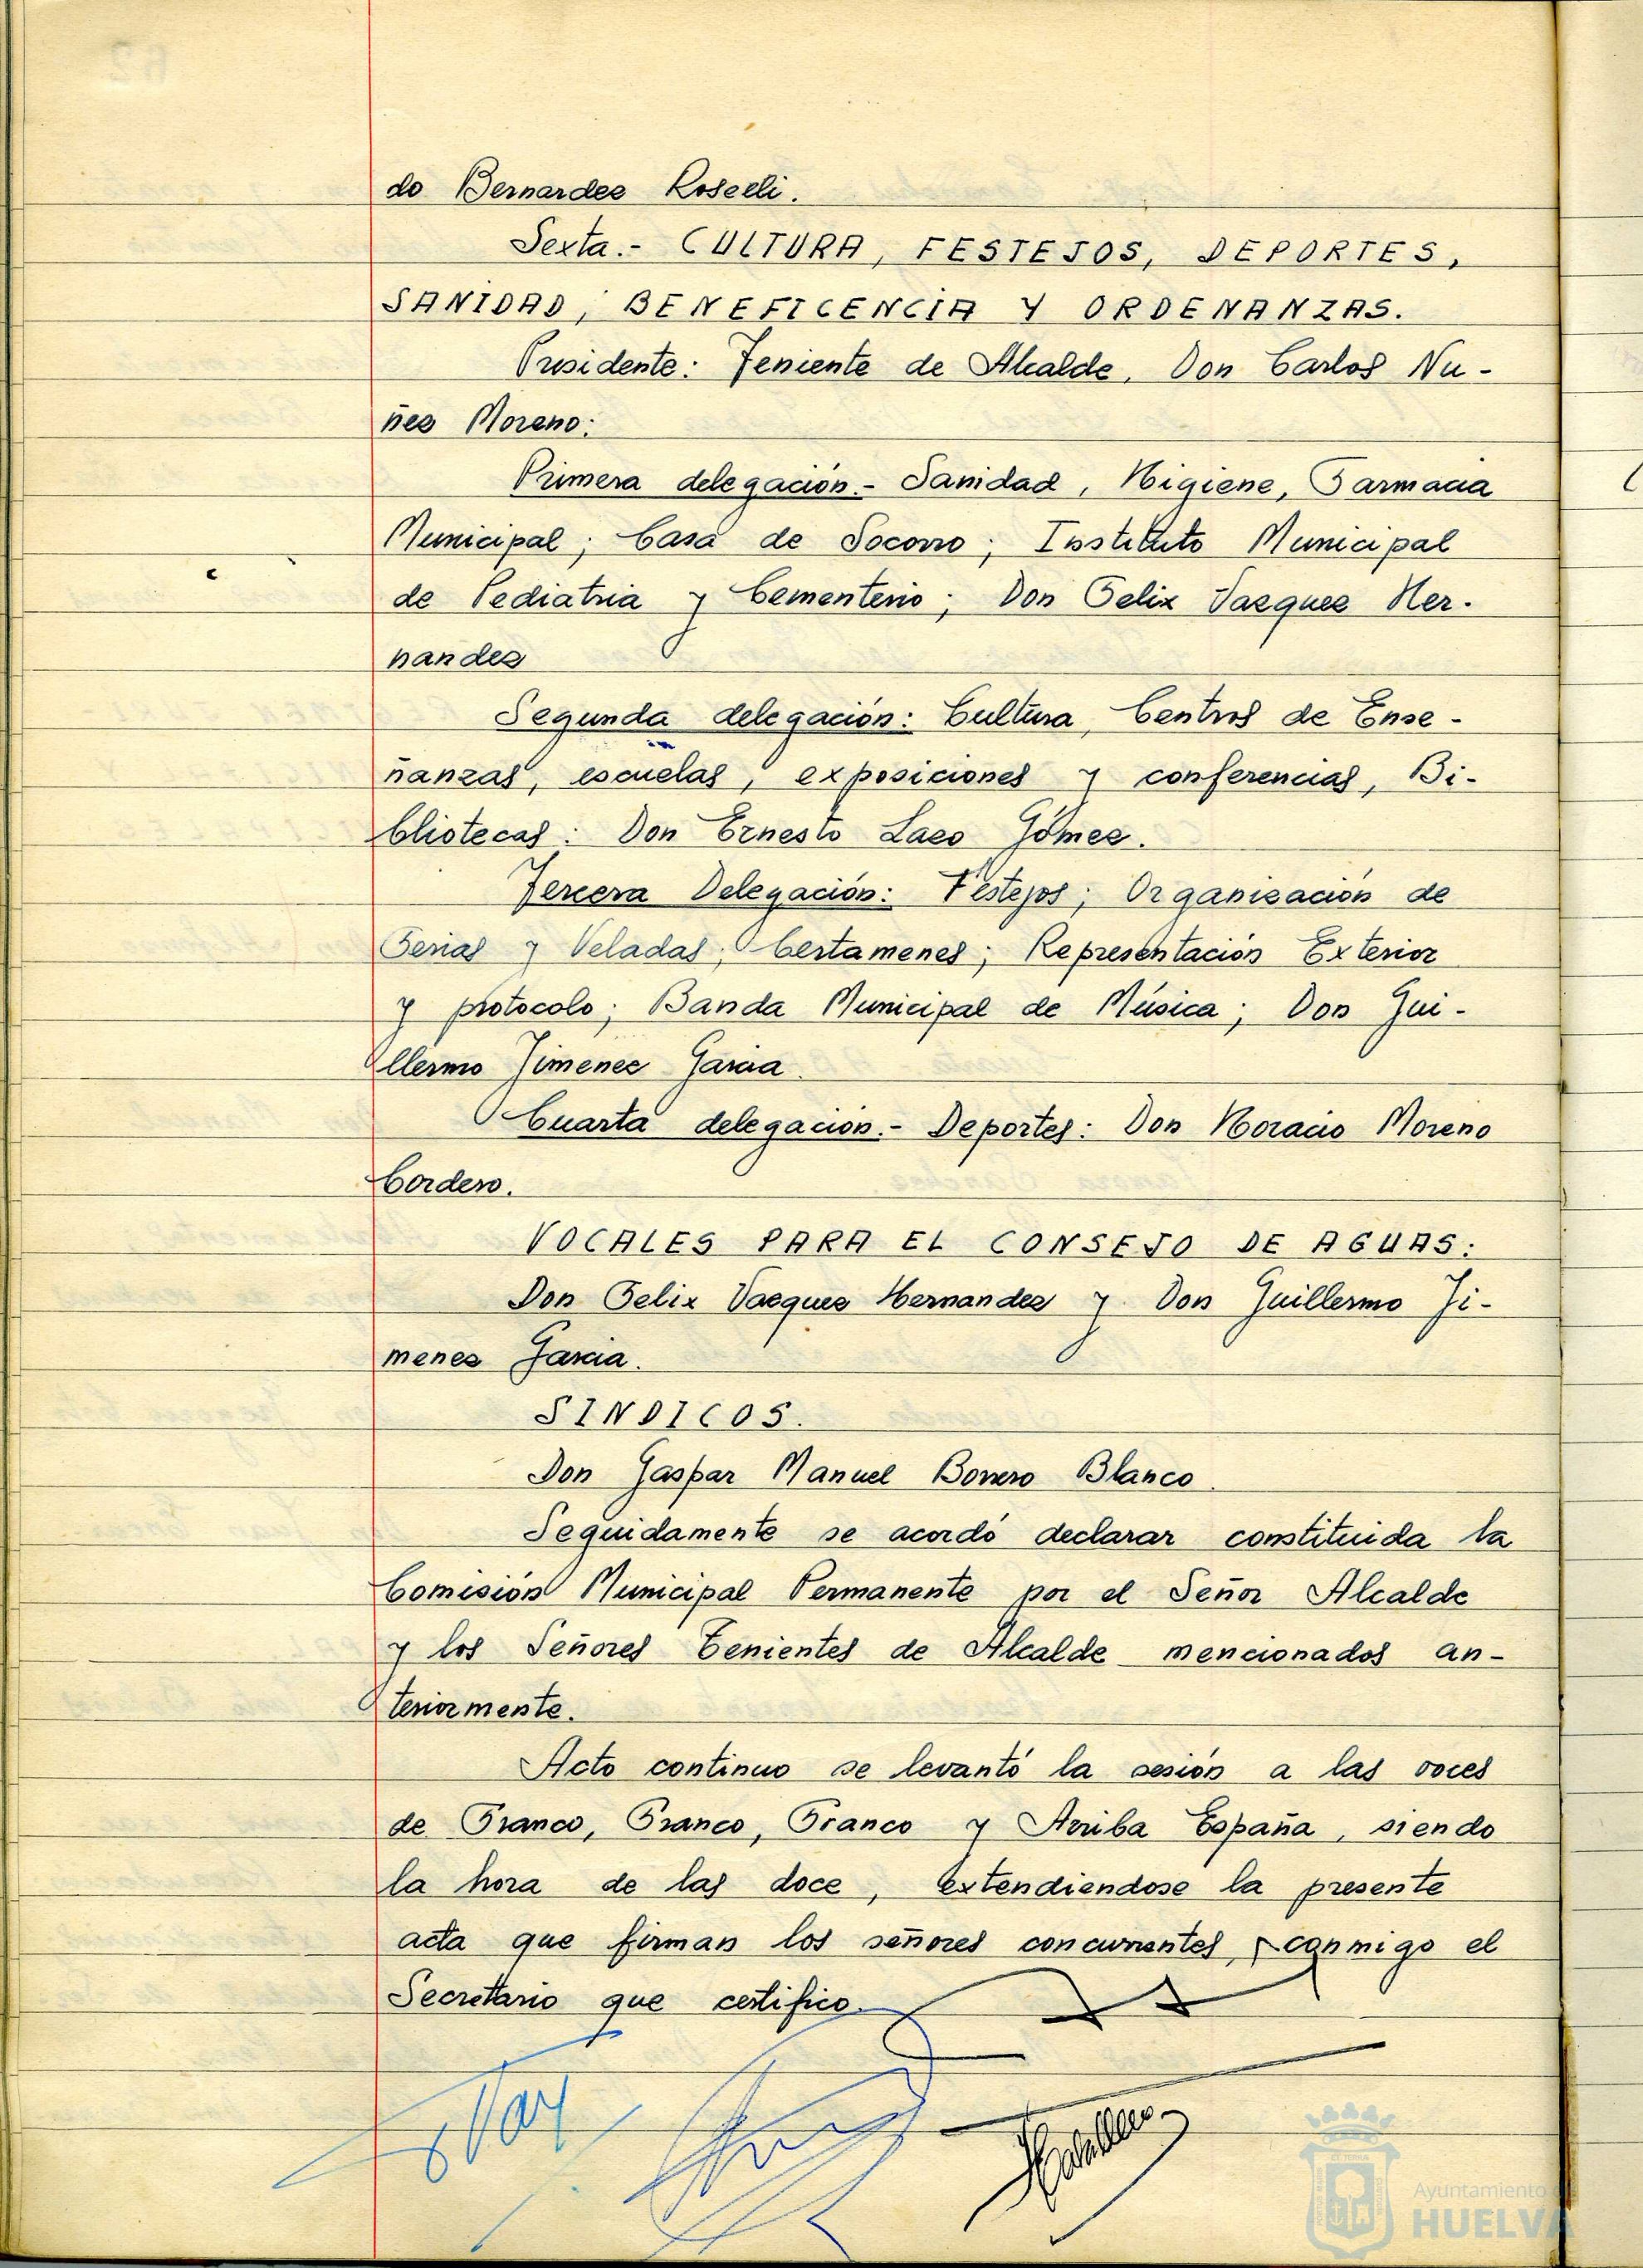 do Bernardez Roselli.
Sexta.- CULTURA, FESTEJOS, DEPORTES,
SANIDAD, BENEFICENCIA Y ORDENANZAS.
Presidente: Teniente de Alcalde, Don Carlos Nu-
ñez Moreno:
Primera delegación.- Sanidad, Higiene, Farmacia
Municipal; Casa de Socorro; Instituto Municipal
de Pediatria y Cementerio; Don Felix Vazquez Her-
nandez
Segunda delegación: Cultura, Centros de Ense-
ñanzas, escuelas, exposiciones y conferencias, Bi-
bliotecas: Don Ernesto Lazo Gómez.
Tercera Delegación: Festejos; Organización de
Ferias y Veladas; Certamenes; Representación Exterior
y protocolo; Banda Municipal de Música; Don Gui-
llermo Jimenez Garcia.
Cuarta delegación.- Deportes: Don Horacio Moreno
Cordero.
VOCALES PARA EL CONSEJO DE AGUAS:
Don Felix Vazquez Hernandez y Don Guillermo Ji-
menez Garcia.
SINDICOS.
Don Gaspar Manuel Borrero Blanco.
Seguidamente se acordó declarar constituida la
Comisión Municipal Permanente por el Señor Alcalde
y los Señores Tenientes de Alcalde mencionados an-
teriormente.
Acto continuo se levantó la sesión a las voces
de Franco, Franco, Franco y Arriba España, siendo
la hora de las doce, extendiendose la presente
acta que firman los señores concurrentes, conmigo el
Secretario que certifico.
Ayuntamiento de
HUELVA